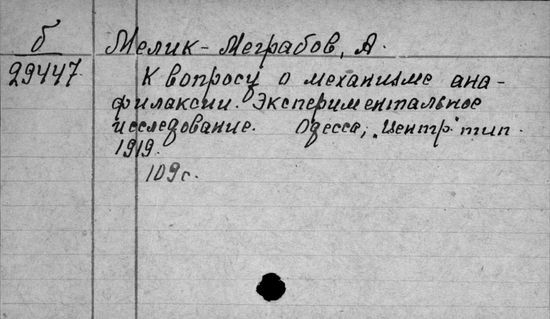 б
29447
Мелик-Меграбов, А.
К вопросу о механизме ана-
филаксии. Экспериментальное
исследование. Одесса, "Центр" тип.
1919.
109 с.